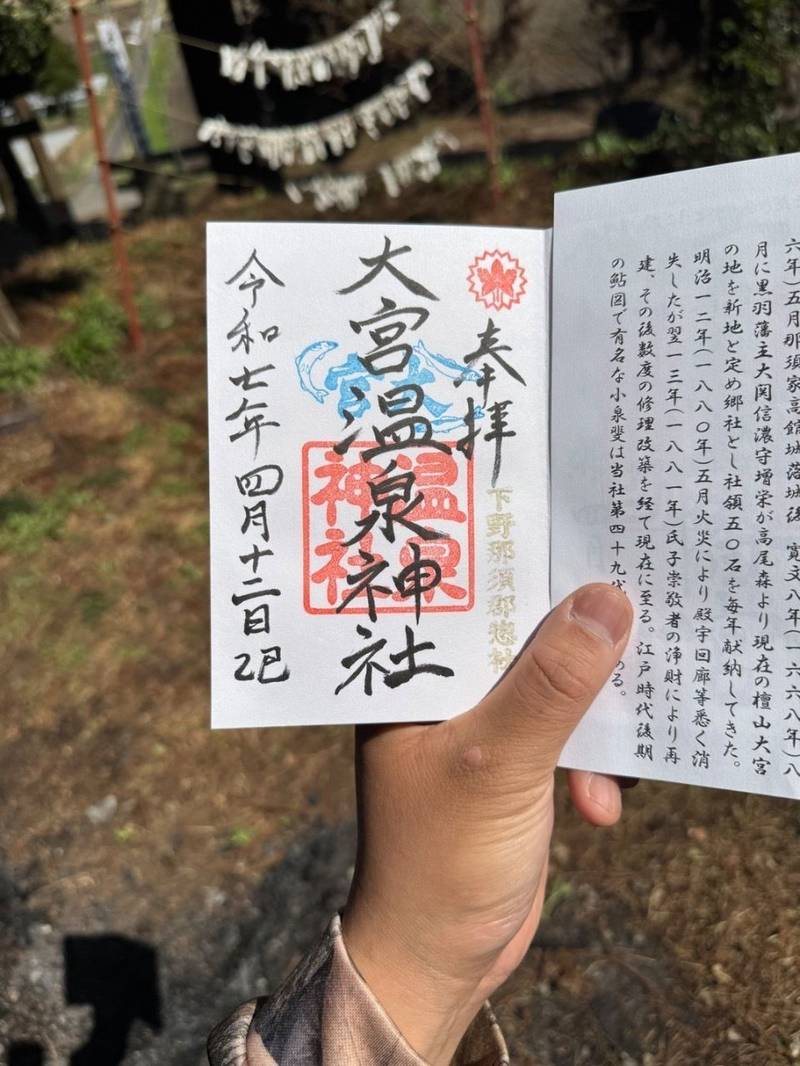 六年)五月那須家高館城落城後 寛文八年(一六六八年)八
月に黒羽藩主大関信濃守増栄が高尾森より現在の檀山大宮
の地を新地と定め郷社とし社領五〇石を毎年献納してきた。
明治一二年(一八八〇年)五月火災により殿宇回廊等悉く消
失したが翌一三年(一八八一年)氏子崇敬者の浄財により再
建、その後数度の修理改築を経て現在に至る。江戸時代後期
の鮎図で有名な小泉斐は当社第四十九代
る。
奉拝
下野那須郡惣社
大宮温泉神社
温泉
神社
令和七年四月十二日 乙巳